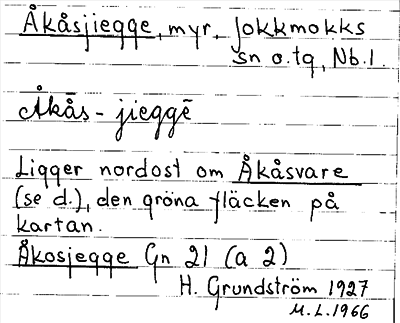 Åkåsjiegge, myr, Jokkmokks
sn o.tg, Nb.l.
Åkås-jieggē
Ligger nordost om Åkåsvare
(se d.), den gröna fläcken på
kartan.
Åkosjegge Gn 21 (a 2)
H. Grundström 1927
M.L.1966